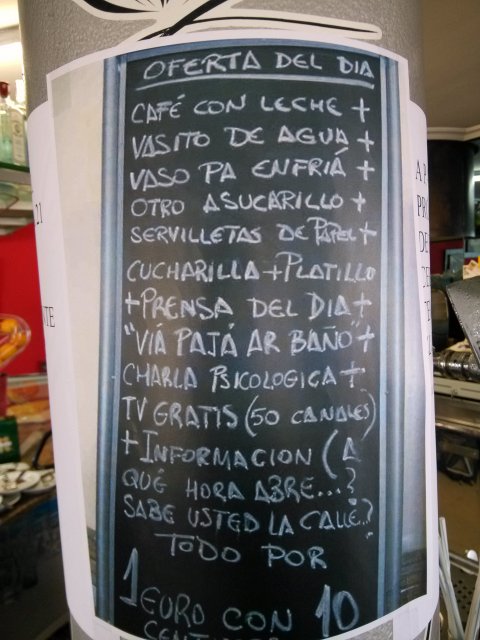 OFERTA DEL DIA
CAFÉ CON LECHE +
VASITO DE AGUA +
VASO PA ENFRIÁ +
OTRO ASUCARILLO +
SERVILLETAS DE PAPEL +
CUCHARILLA + PLATILLO
+ PRENSA DEL DIA +
"VIÁ PAJÁ AR BAÑO" +
CHARLA PSICOLOGICA +
TV GRATIS (50 CANALES)
+ INFORMACION (A
QUÉ HORA ABRE...?
SABE USTED LA CALLE..?
TODO POR
1 EURO CON 10
CENTIMOS
21
NTE
A P
PR
DE
DE